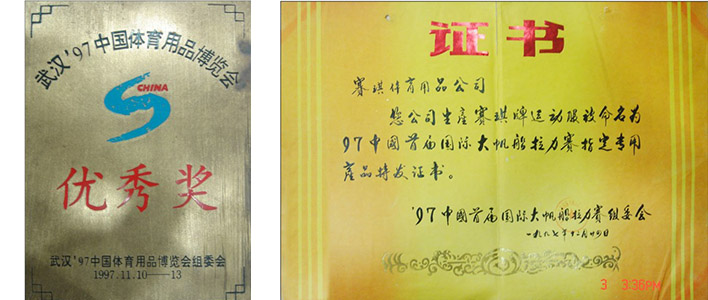 武汉'97中国体育用品博览会
CHINA
优秀奖
武汉'97中国体育用品博览会组委会
1997.11.10——13
证书
赛琪体育用品公司
您公司生産赛琪牌运动服被命名为
97中國首届国际大帆船拉力赛指定专用
産品特发证书。
'97中國首届国际大帆船拉力赛组委会
一九九七年十二月廿四日
3 3:36PM